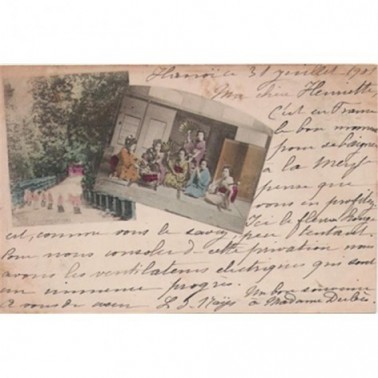 Hanoï le 31 juillet 1901
Ma chère Henriette
C'est en France
le bon moment
pour se baigner
à la Mer je
pense que
vous en profitez
Ici le fleuve Rouge
est, comme vous le savez, peu tentant
Pour nous consoler de cette privation nous
avons les ventilateurs électriques qui sont
un immense progrès. Un bon souvenir
à vous de cœur à Madame